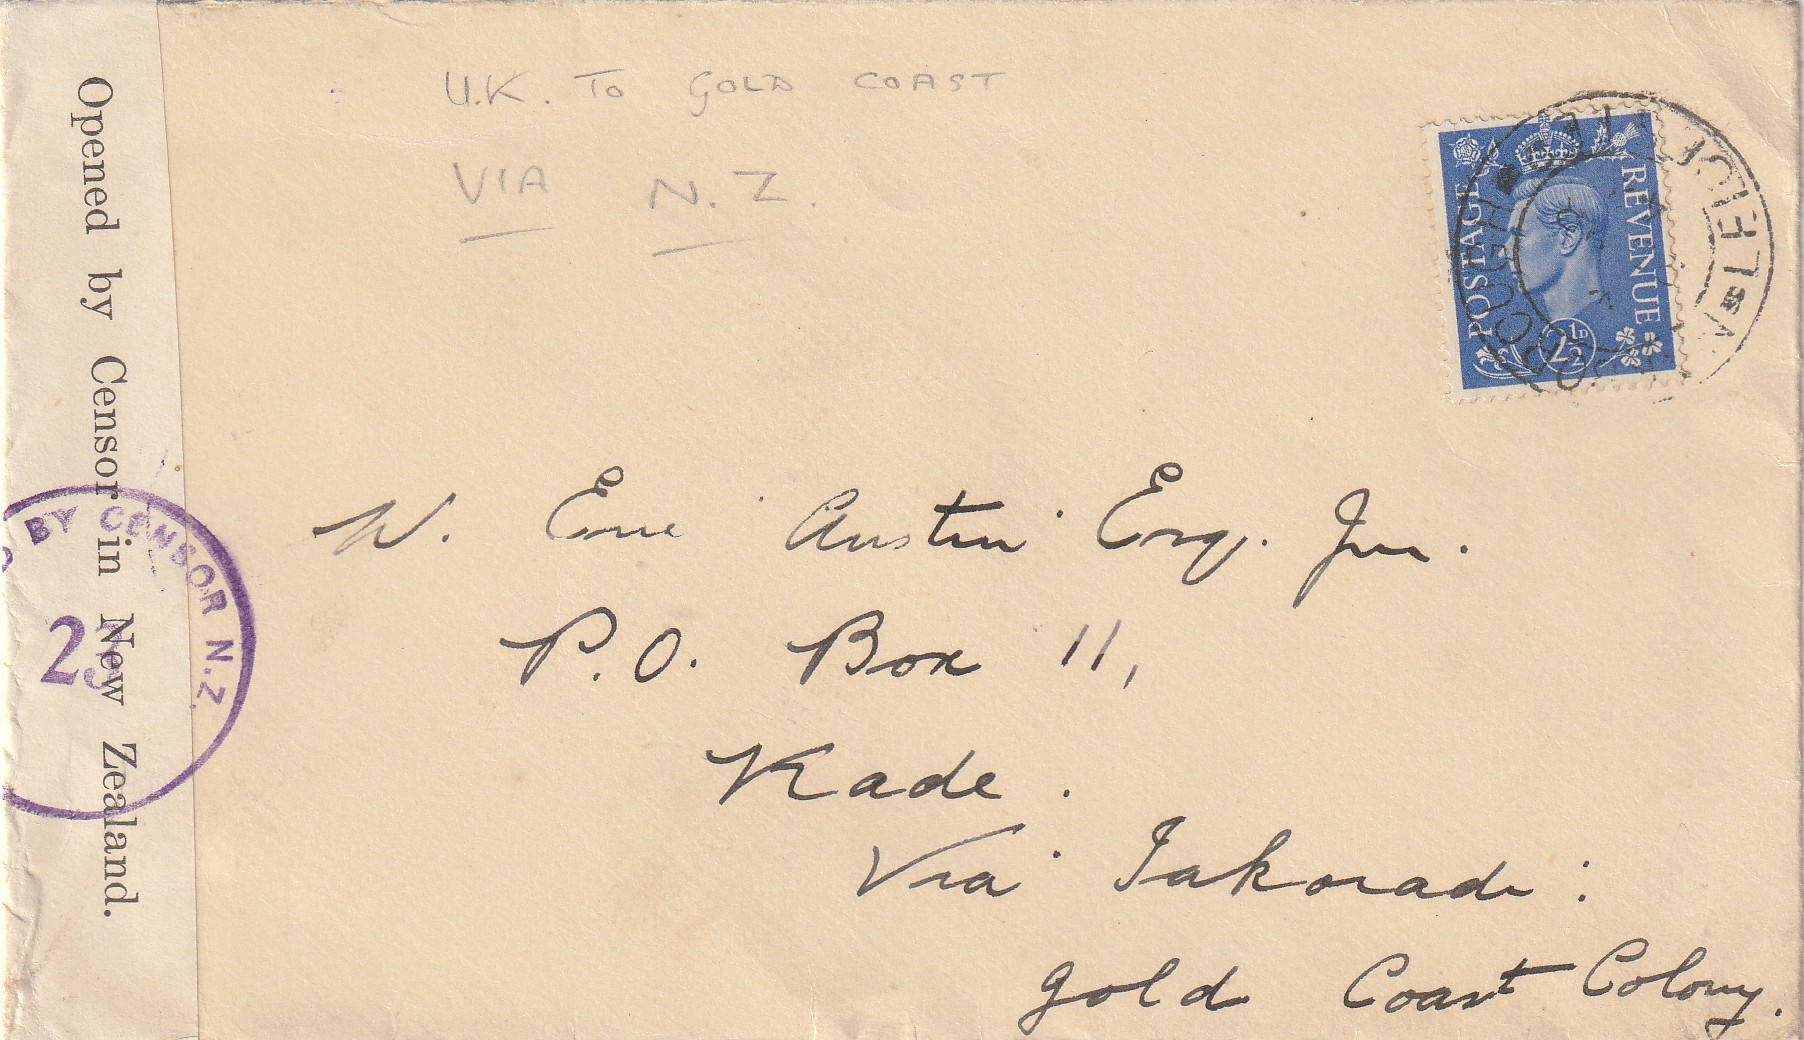 U.K. TO GOLD COAST
VIA N.Z.
POSTAGE
REVENUE
2½D
LOUGHBOROUGH
Opened by Censor in New Zealand.
BY CENSOR N.Z.
23
W. Eric Austin Esq. Jun.
P.O. Box 11,
Kade.
Via Takoradi:
Gold Coast Colony.